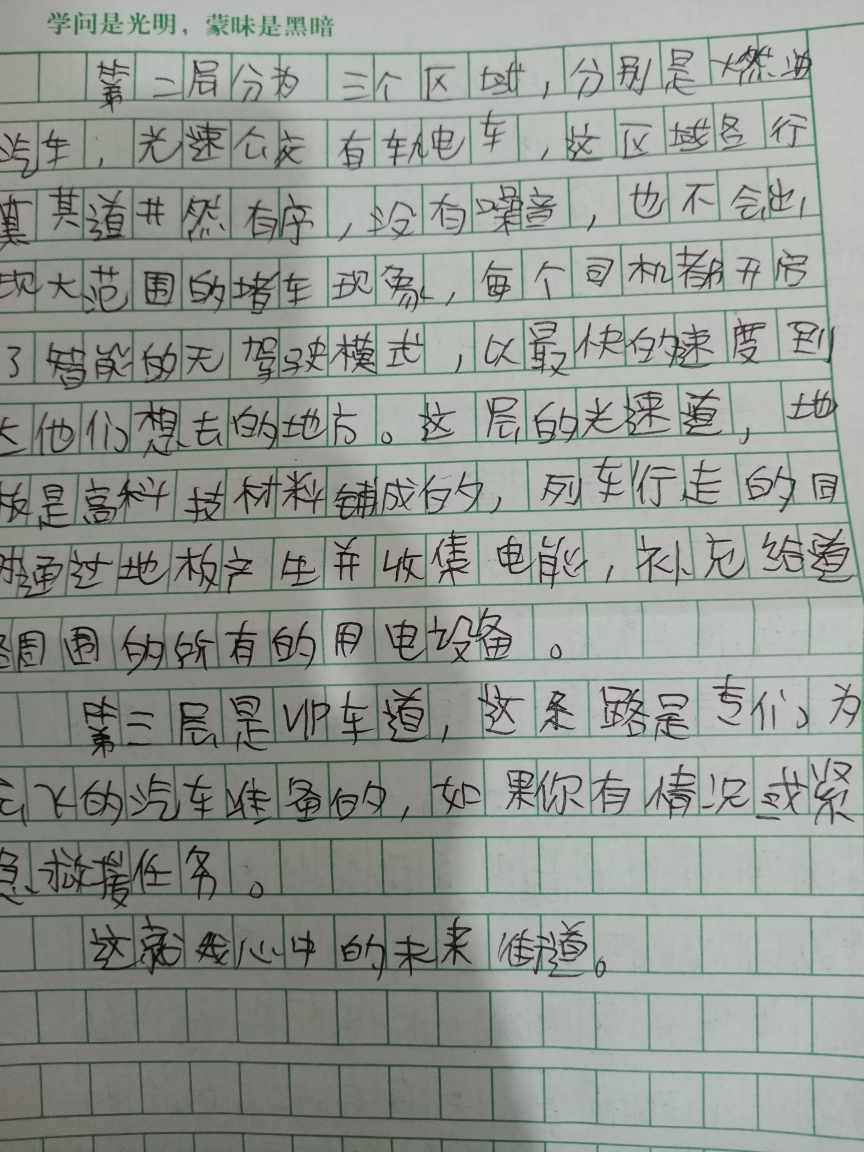 学问是光明，蒙昧是黑暗
第二层分为三个区域，分别是燃油
汽车，光速公交有轨电车，这区域各行
其道井然有序，没有噪音，也不会出
现大范围的堵车现象，每个司机都开启
了智能的无驾驶模式，以最快的速度到
达他们想去的地方。这层的光速道，地
板是高科技材料铺成的，列车行走的同
时通过地板产生并收集电能，补充给道
路周围的所有的用电设备。
第三层是VIP车道，这条路是专们为
飞的汽车准备的，如果你有情况或紧
急救援任务。
这就我心中的未来道。